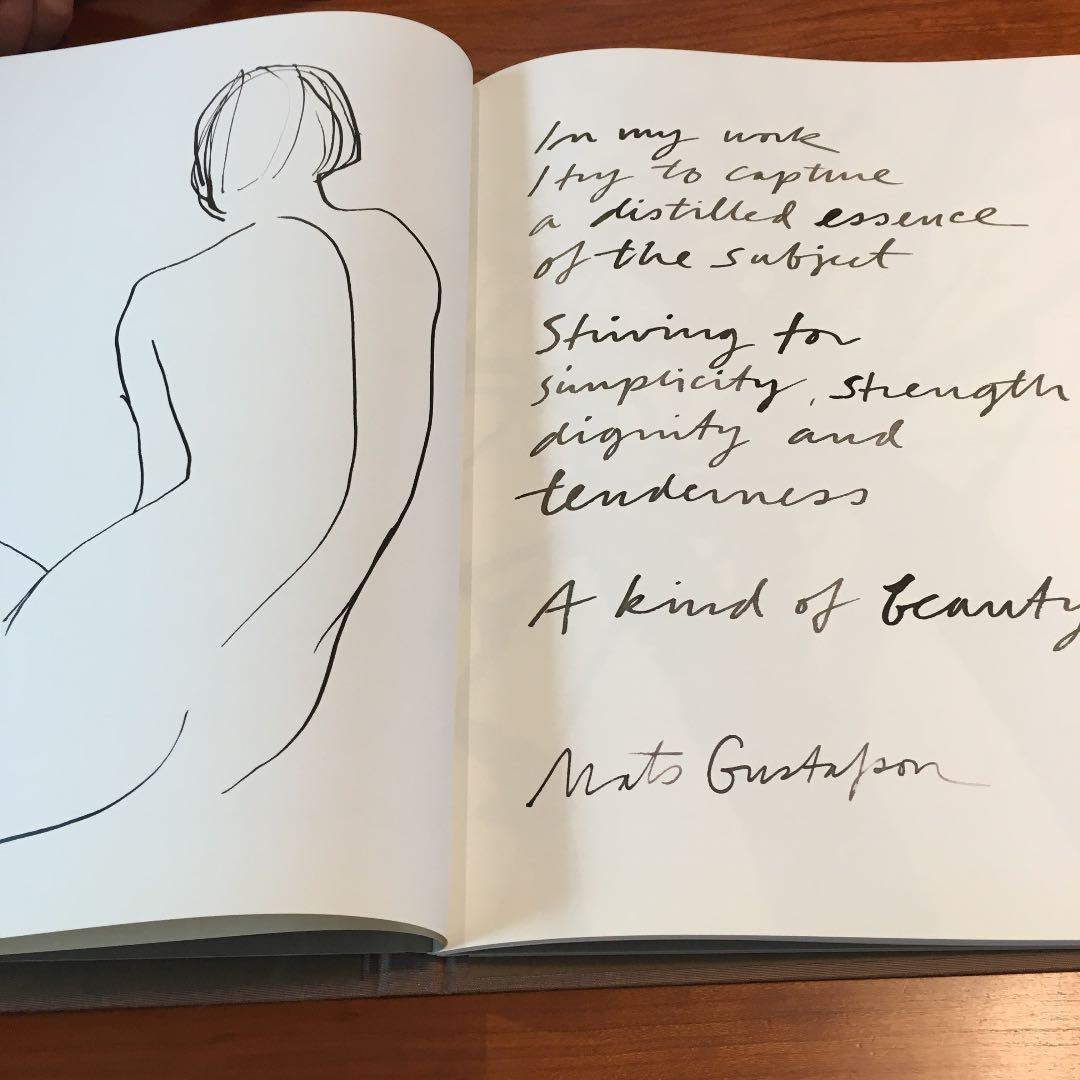 In my work
I try to capture
a distilled essence
of the subject
Striving for
simplicity, strength
dignity and
tenderness
A kind of beauty
Mats Gustafson